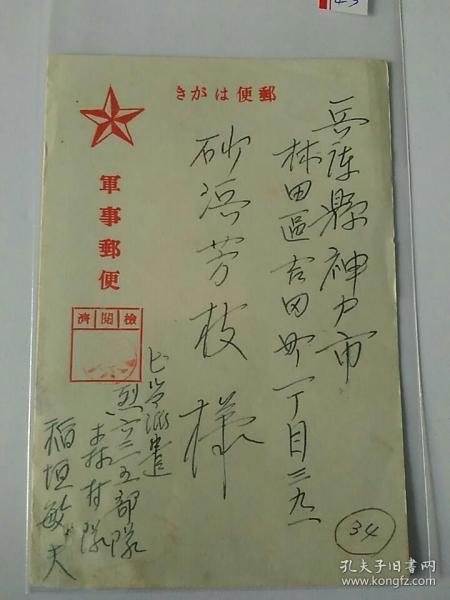 郵便はがき
軍事郵便
検閲済
兵庫縣神戸市
林田區吉田町一丁目三九一
砂浜芳枝様
派遣
烈六二五部隊
森村隊
稲垣敏夫
34
孔夫子旧书网
www.kongfz.com